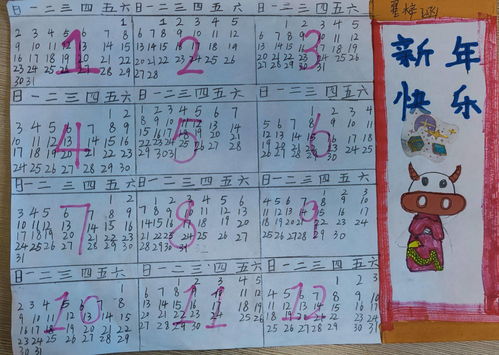 日一二三四五六
1
2 3 4 5 6 7 8
9 10 11 12 13 14 15
16 17 18 19 20 21 22
23 24 25 26 27 28 29
30 31
1
日一二三四五六
1 2 3 4 5
6 7 8 9 10 11 12
13 14 15 16 17 18 19
20 21 22 23 24 25 26
27 28
2
日一二三四五六
1 2 3 4 5
6 7 8 9 10 11 12
13 14 15 16 17 18 19
20 21 22 23 24 25 26
27 28 29 30 31
3
日一二三四五六
1 2
3 4 5 6 7 8 9
10 11 12 13 14 15 16
17 18 19 20 21 22 23
24 25 26 27 28 29 30
4
日一二三四五六
1 2 3 4 5 6 7
8 9 10 11 12 13 14
15 16 17 18 19 20 21
22 23 24 25 26 27 28
29 30 31
5
日一二三四五六
1 2 3 4
5 6 7 8 9 10 11
12 13 14 15 16 17 18
19 20 21 22 23 24 25
26 27 28 29 30
6
日一二三四五六
1 2
3 4 5 6 7 8 9
10 11 12 13 14 15 16
17 18 19 20 21 22 23
24 25 26 27 28 29 30
31
7
日一二三四五六
1 2 3 4 5 6
7 8 9 10 11 12 13
14 15 16 17 18 19 20
21 22 23 24 25 26 27
28 29 30 31
8
日一二三四五六
1 2 3
4 5 6 7 8 9 10
11 12 13 14 15 16 17
18 19 20 21 22 23 24
25 26 27 28 29 30
9
日一二三四五六
1
2 3 4 5 6 7 8
9 10 11 12 13 14 15
16 17 18 19 20 21 22
23 24 25 26 27 28 29
30 31
10
日一二三四五六
1 2 3 4 5
6 7 8 9 10 11 12
13 14 15 16 17 18 19
20 21 22 23 24 25 26
27 28 29 30
11
日一二三四五六
1 2 3
4 5 6 7 8 9 10
11 12 13 14 15 16 17
18 19 20 21 22 23 24
25 26 27 28 29 30 31
12
新年
快乐